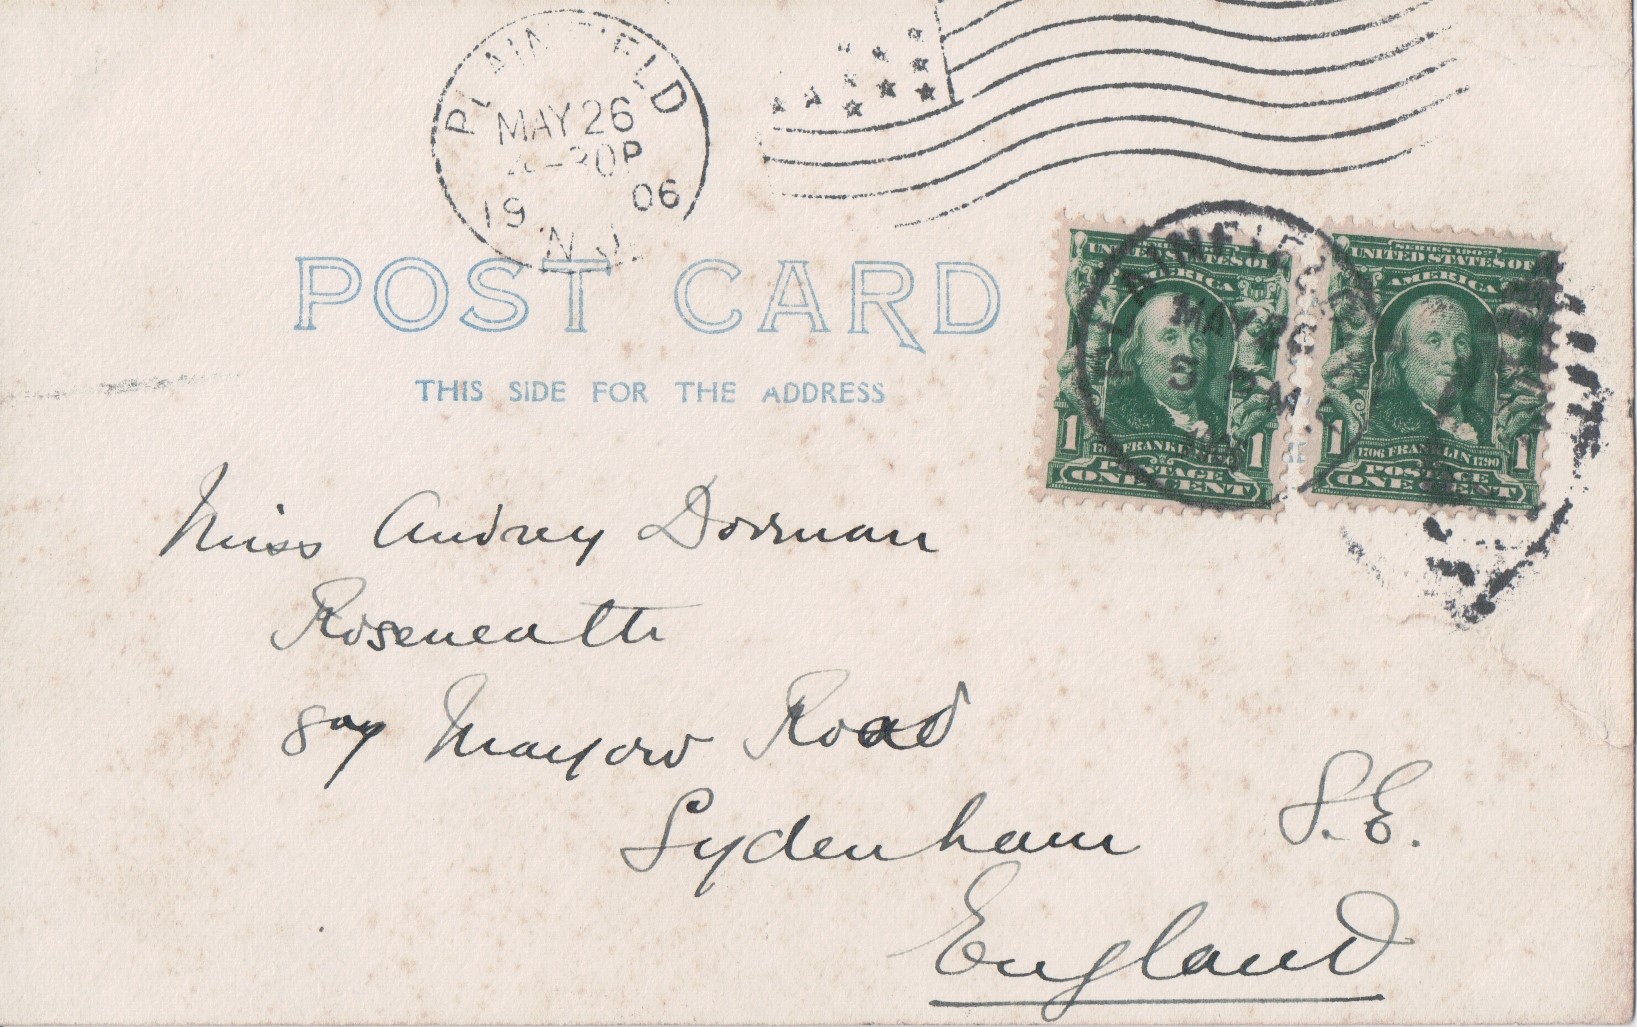 PLAINFIELD
MAY 26
-30P
19 06
N.J.
POST CARD
THIS SIDE FOR THE ADDRESS
SERIES 1902
UNITED STATES OF
AMERICA
1 1
1706 FRANKLIN 1790
POSTAGE
ONE CENT
SERIES 1902
UNITED STATES OF
AMERICA
1 1
1706 FRANKLIN 1790
POSTAGE
ONE CENT
PLAINFIELD
MAY 26
3 PM
Miss Audrey Dorman
Roseneath
Mayow Road
Sydenham S.E.
England